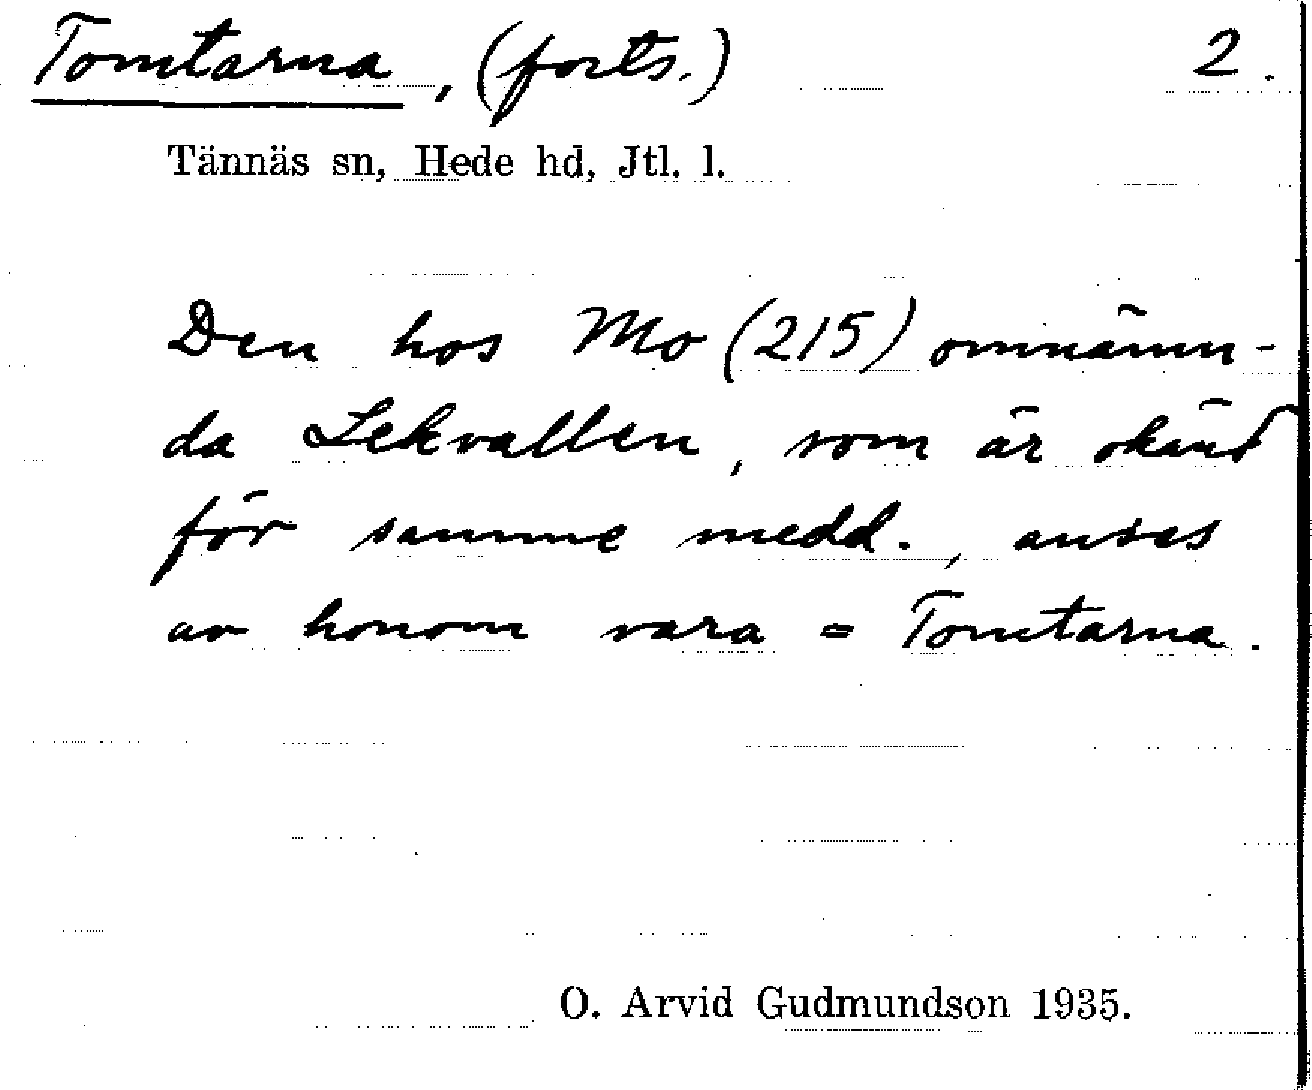 Tomtarna, (forts.) 2.
Tännäs sn, Hede hd, Jtl. l.
Den hos Mo (215) omnämn-
da Lekvallen, som är okänd
för samme medd., anses
av honom vara = Tomtarna.
O. Arvid Gudmundson 1935.